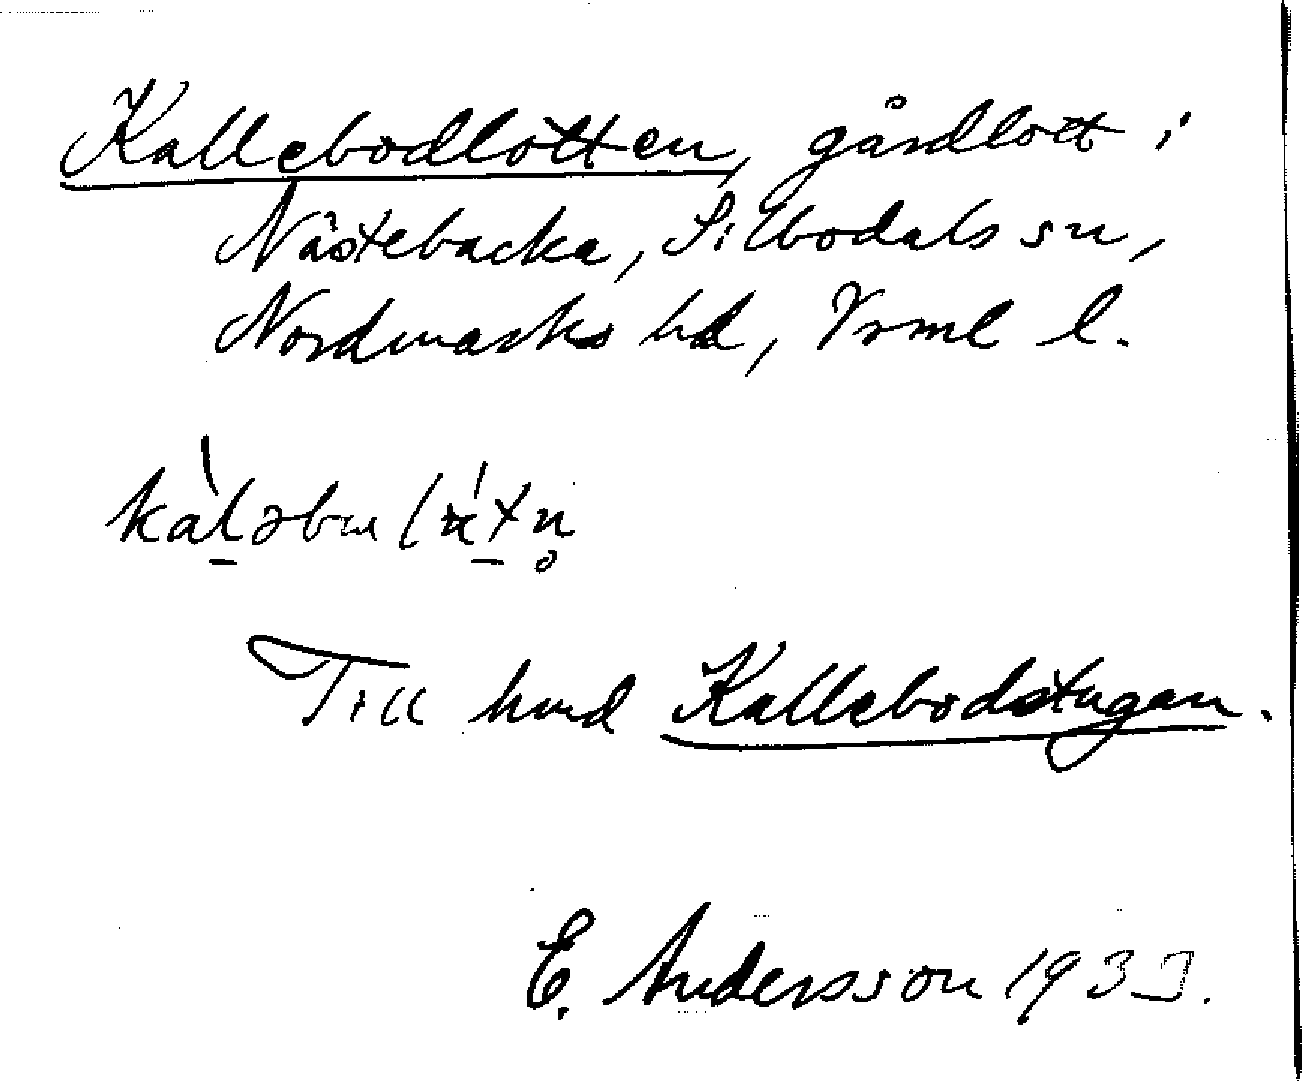 Kallebodlotten, gårdlott i
Nästebacka, Silbodals sn,
Nordmarks hd, Vrml l.
Till hmd Kallebodstugan.
E. Andersson 1933.